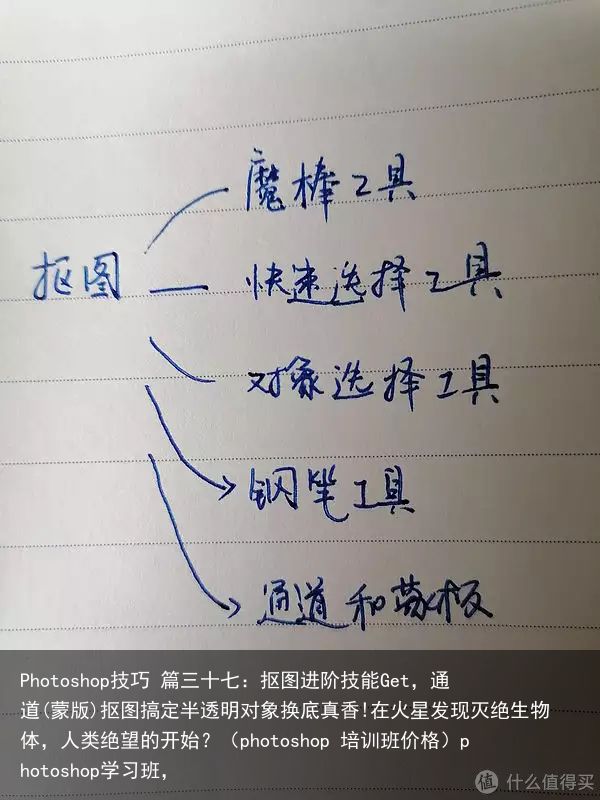 魔棒工具
抠图
快速选择工具
对象选择工具
钢笔工具
通道和蒙板
Photoshop技巧 篇三十七：抠图进阶技能Get，通
道(蒙版)抠图搞定半透明对象换底真香!在火星发现灭绝生物
体，人类绝望的开始？（photoshop 培训班价格）p
hotoshop学习班，
值 什么值得买